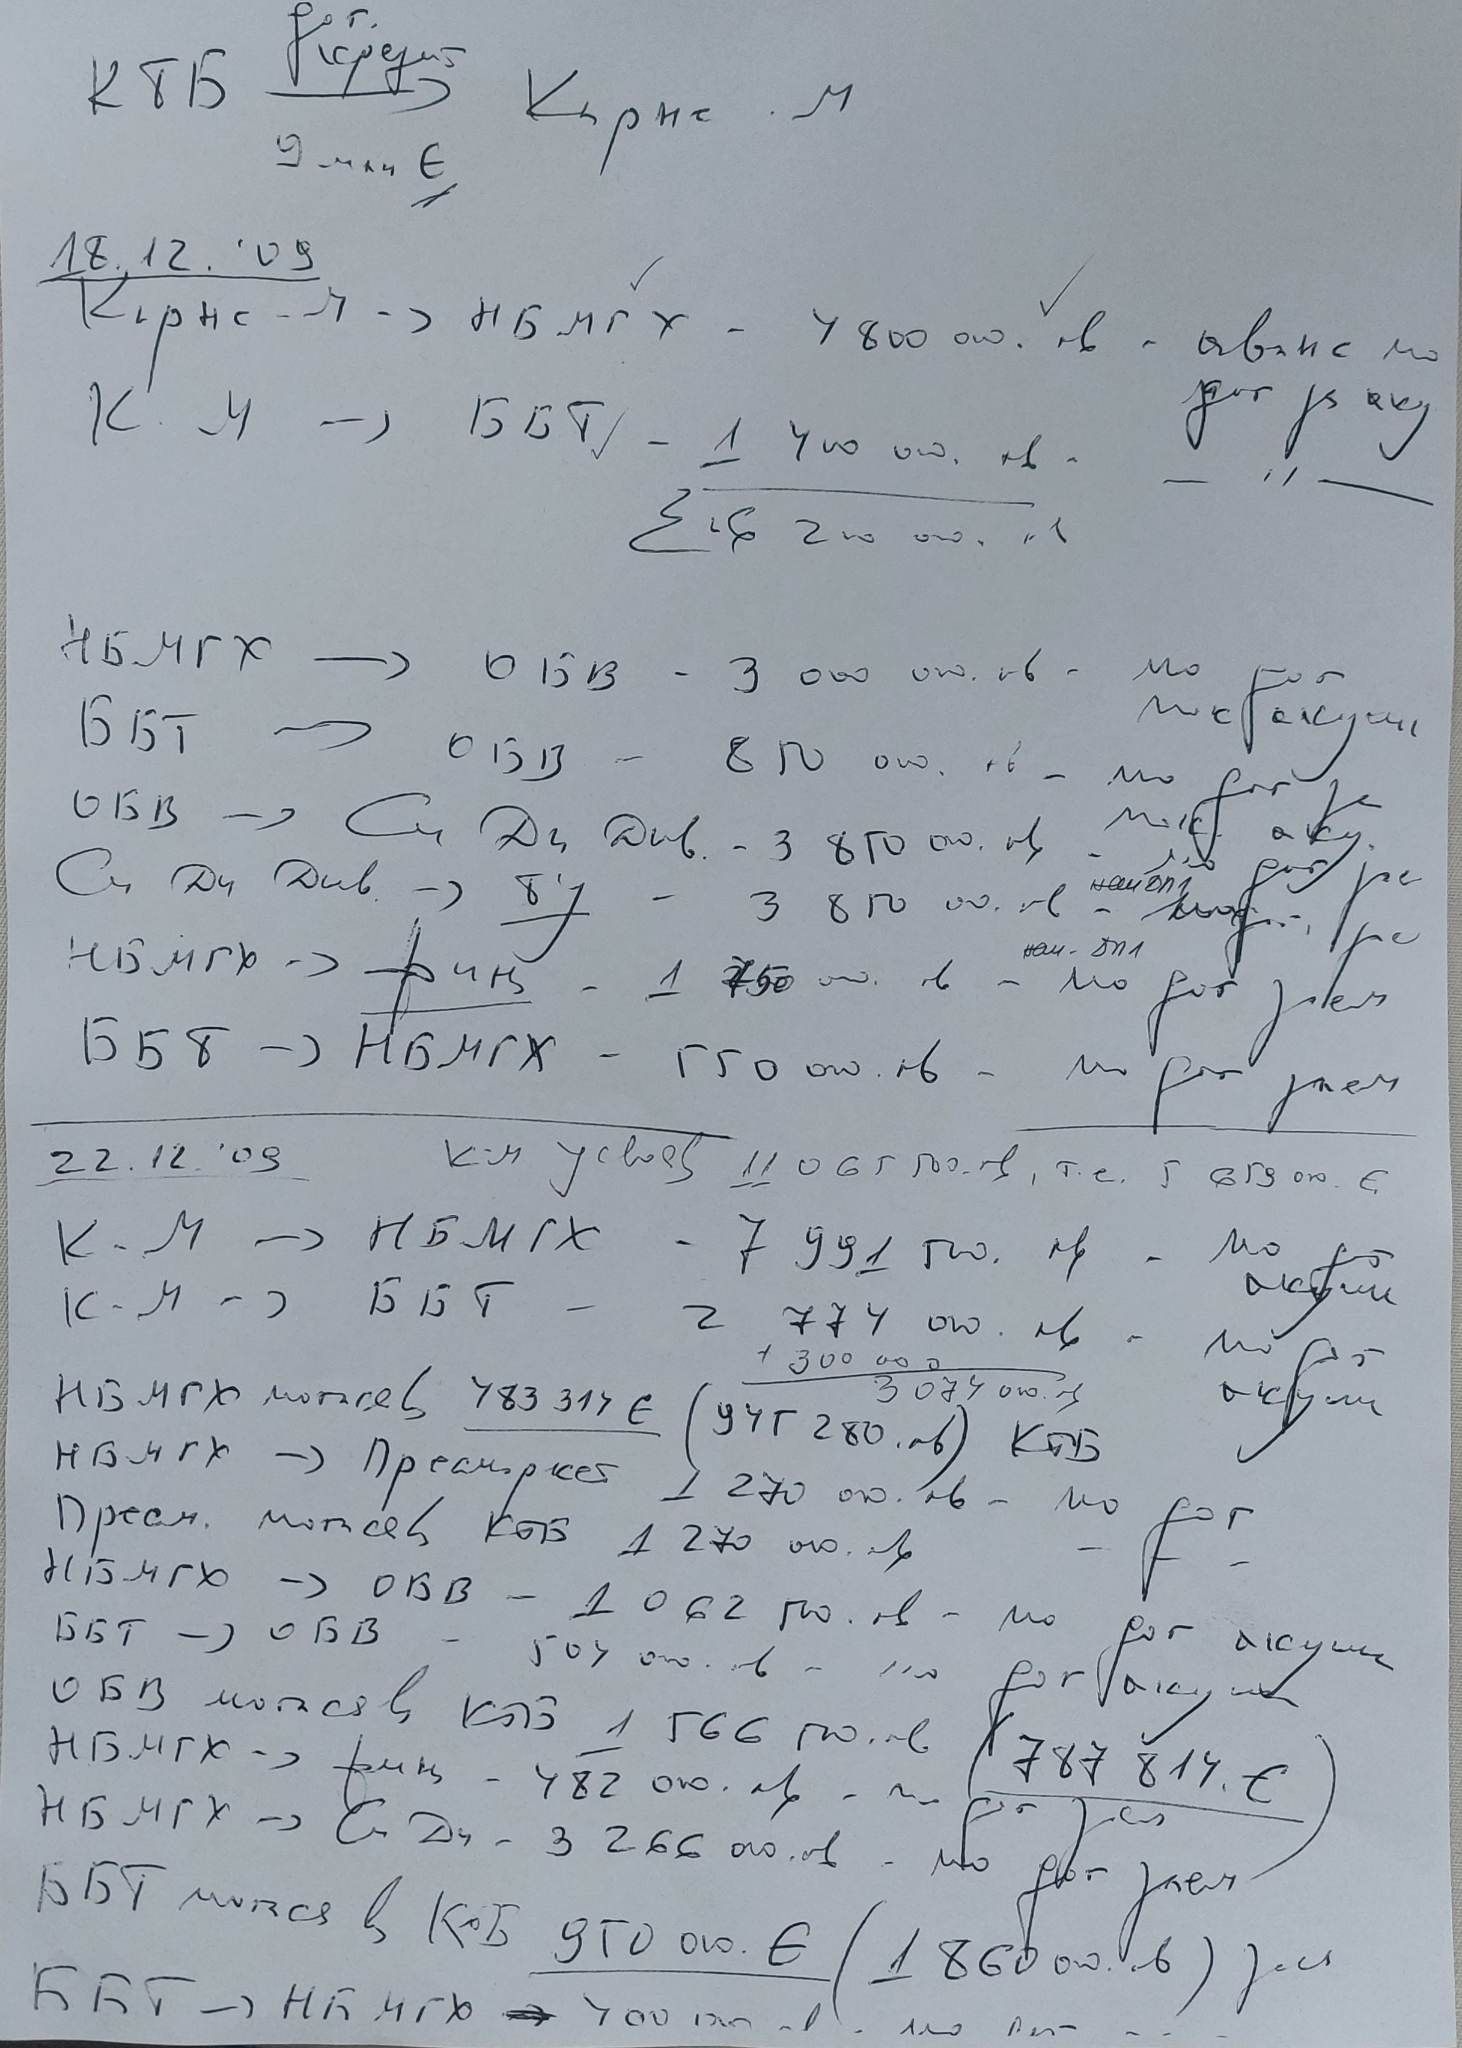 дог. кредит
КТБ → Кърнс. М
9 млн €
18.12.'09
Кърнс-М → НБМГХ - 4 800 000. лв - аванс по дог за аку
К. М → ББТ - 1 400 000. лв - — " —
Σ 6 200 000. лв
НБМГХ → ОБВ - 3 000 000. лв - по дог пок акции
ББТ → ОБВ - 850 000. лв - по дог за пок. аку.
ОБВ → Си Ди Див. - 3 850 000. лв - по дог за
Си Ди Див. → - 3 850 000. лв -
НБМГХ → финъ - 1 750 000. лв - по дог заем
ББТ → НБМГХ - 550 000. лв - по дог заем
22.12.'09 К-М усвоев 11 065 500. лв, т.е. 5 659 000. €
К-М → НБМГХ - 7 991 500. лв - по дог акции
К-М → ББТ - 2 774 000. лв - по дог акции
+ 300 000
3 074 000. лв
НБМГХ погасяв 483 314 € (945 280. лв) КТБ
НБМГХ → Пресмаркет 1 270 000. лв - по дог
Пресм. погасяв КТБ 1 270 000. лв - - -
НБМГХ → ОБВ - 1 062 500. лв - по дог акции
ББТ → ОБВ - 504 000. лв - по дог акции
ОБВ погасяв КТБ 1 566 500. лв (787 814. €)
НБМГХ → финъ - 482 000. лв - по дог заем
НБМГХ → Си Ди - 3 266 000. лв - по дог заем
ББТ погасяв КТБ 950 000. € (1 860 000. лв) заем
ББТ → НБМГХ → 400 000 лв - по дог